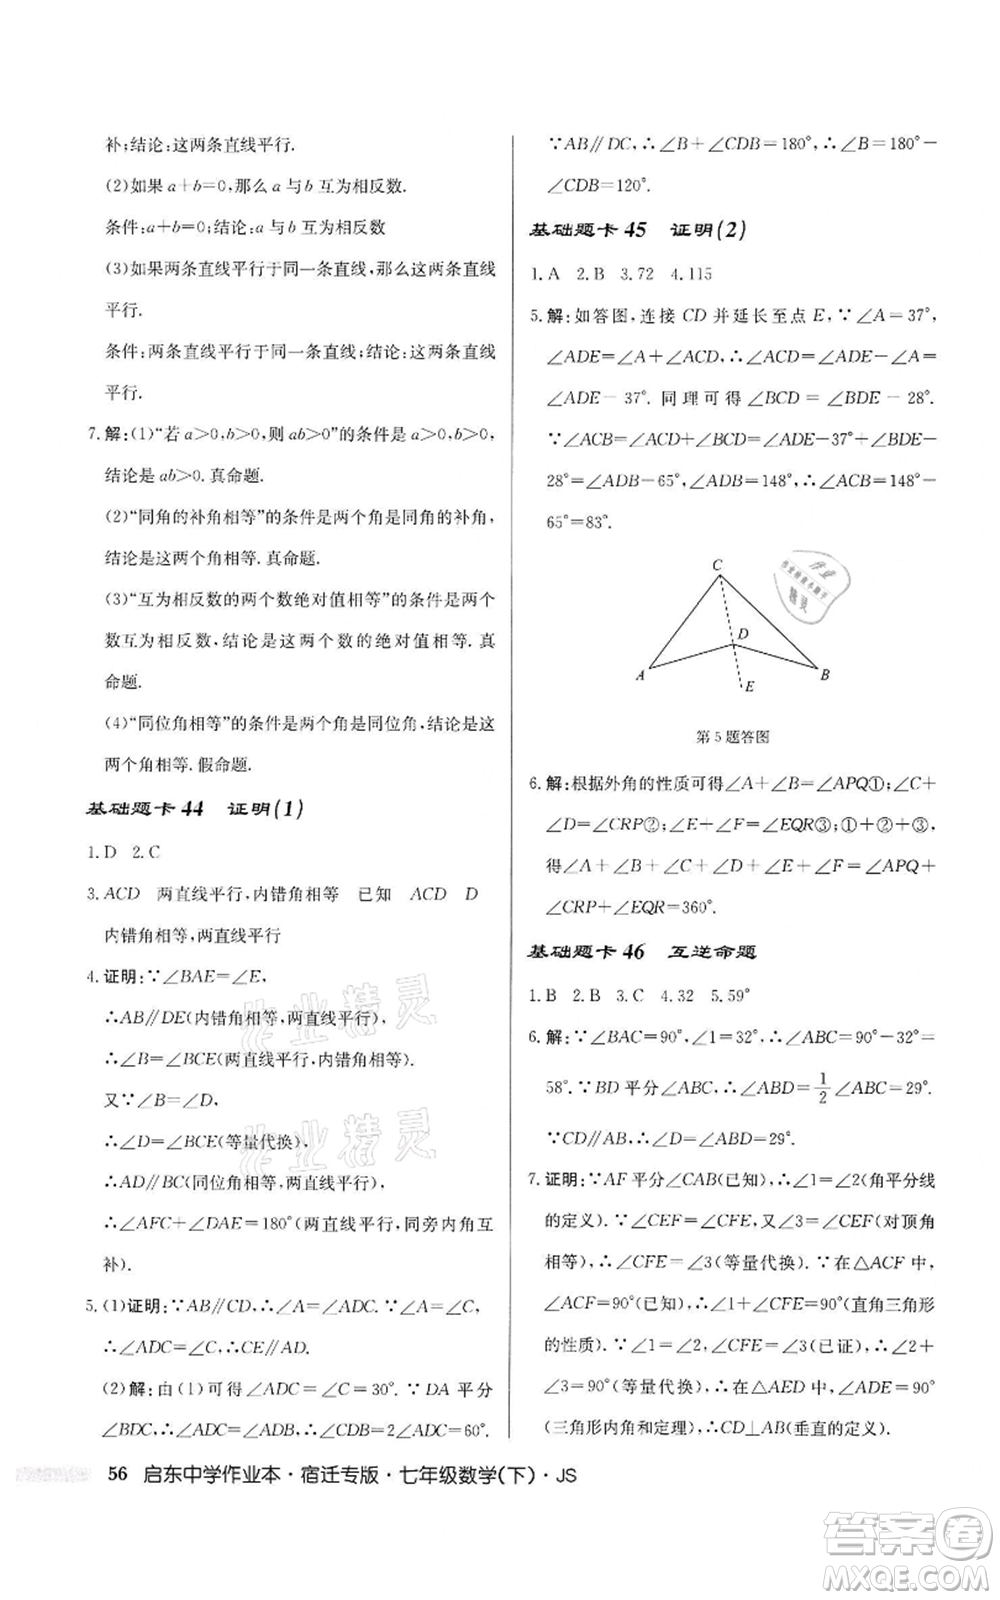 补;结论:这两条直线平行.
(2)如果 a+b=0,那么 a 与 b 互为相反数.
条件:a+b=0;结论:a 与 b 互为相反数
(3)如果两条直线平行于同一条直线,那么这两条直线
平行.
条件:两条直线平行于同一条直线;结论:这两条直线
平行.
7.解:(1)“若 a>0,b>0,则 ab>0”的条件是 a>0,b>0,
结论是 ab>0.真命题.
(2)“同角的补角相等”的条件是两个角是同角的补角,
结论是这两个角相等.真命题.
(3)“互为相反数的两个数绝对值相等”的条件是两个
数互为相反数,结论是这两个数的绝对值相等.真
命题.
(4)“同位角相等”的条件是两个角是同位角,结论是这
两个角相等.假命题.
基础题卡 44 证明(1)
1.D 2.C
3.ACD 两直线平行,内错角相等 已知 ACD D
内错角相等,两直线平行
4.证明:∵∠BAE=∠E,
∴AB∥DE(内错角相等,两直线平行),
∴∠B=∠BCE(两直线平行,内错角相等).
又∵∠B=∠D,
∴∠D=∠BCE(等量代换),
∴AD∥BC(同位角相等,两直线平行),
∴∠AFC+∠DAE=180°(两直线平行,同旁内角互
补).
5.(1)证明:∵AB∥CD,∴∠A=∠ADC.∵∠A=∠C,
∴∠ADC=∠C,∴CE∥AD.
(2)解:由(1)可得∠ADC=∠C=30°.∵DA 平分
∠BDC,∴∠ADC=∠ADB,∴∠CDB=2∠ADC=60°.
∵AB∥DC,∴∠B+∠CDB=180°,∴∠B=180°-
∠CDB=120°.
基础题卡 45 证明(2)
1.A 2.B 3.72 4.115
5.解:如答图,连接 CD 并延长至点 E,∵∠A=37°,
∠ADE=∠A+∠ACD,∴∠ACD=∠ADE-∠A=
∠ADE-37°.同理可得∠BCD=∠BDE-28°.
∵∠ACB=∠ACD+∠BCD=∠ADE-37°+∠BDE-
28°=∠ADB-65°,∠ADB=148°,∴∠ACB=148°-
65°=83°.
C
D
A
E
B
第5题答图
6.解:根据外角的性质可得∠A+∠B=∠APQ①;∠C+
∠D=∠CRP②;∠E+∠F=∠EQR③;①+②+③,
得∠A+∠B+∠C+∠D+∠E+∠F=∠APQ+
∠CRP+∠EQR=360°.
基础题卡 46 互逆命题
1.B 2.B 3.C 4.32 5.59°
6.解:∵∠BAC=90°,∠1=32°,∴∠ABC=90°-32°=
58°.∵BD 平分∠ABC,∴∠ABD=1/2∠ABC=29°.
∵CD∥AB,∴∠D=∠ABD=29°.
7.证明:∵AF 平分∠CAB(已知),∴∠1=∠2(角平分线
的定义).∵∠CEF=∠CFE,又∠3=∠CEF(对顶角
相等),∴∠CFE=∠3(等量代换).∵在△ACF中,
∠ACF=90°(已知),∴∠1+∠CFE=90°(直角三角形
的性质).∵∠1=∠2,∠CFE=∠3(已证),∴∠2+
∠3=90°(等量代换).∵在△AED中,∠ADE=90°
(三角形内角和定理),∴CD⊥AB(垂直的定义).
56 启东中学作业本·宿迁专版·七年级数学(下)·JS
作业精灵
作业精灵
答案卷
MXQE.COM